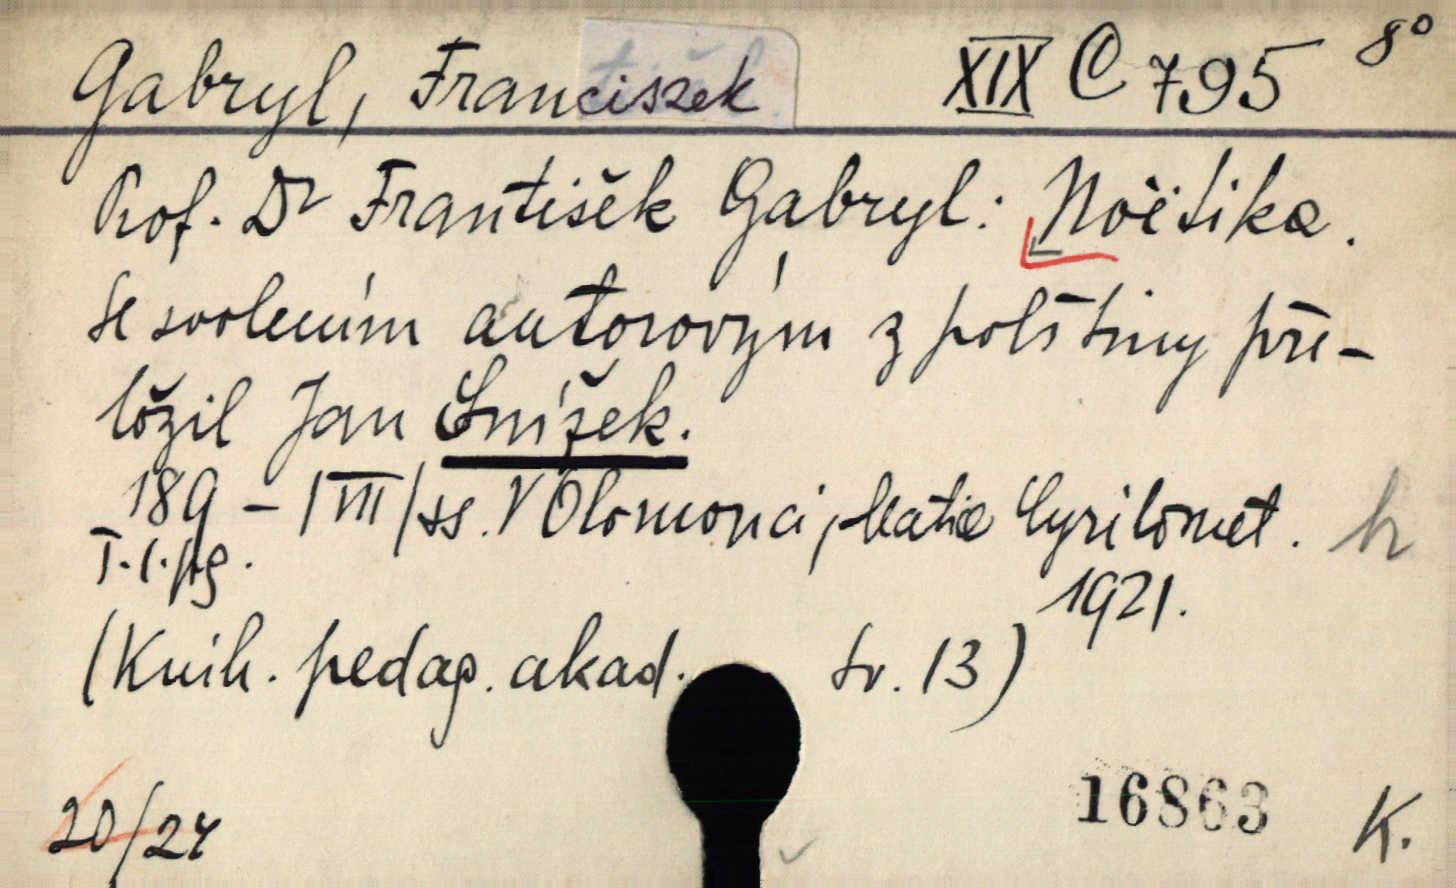 Gabryl, Franciszek XIX C 795 8°
Prof. Dr František Gabryl: Noëtika.
Se svolením autorovým z polštiny pře-
ložil Jan Šnížek.
189 – |VIII| ss. V Olomouci, Matice Cyrilomet.
T. I. pg.
1921.
(Knih. pedag. akad. sv. 13)
16863 K.
20/24